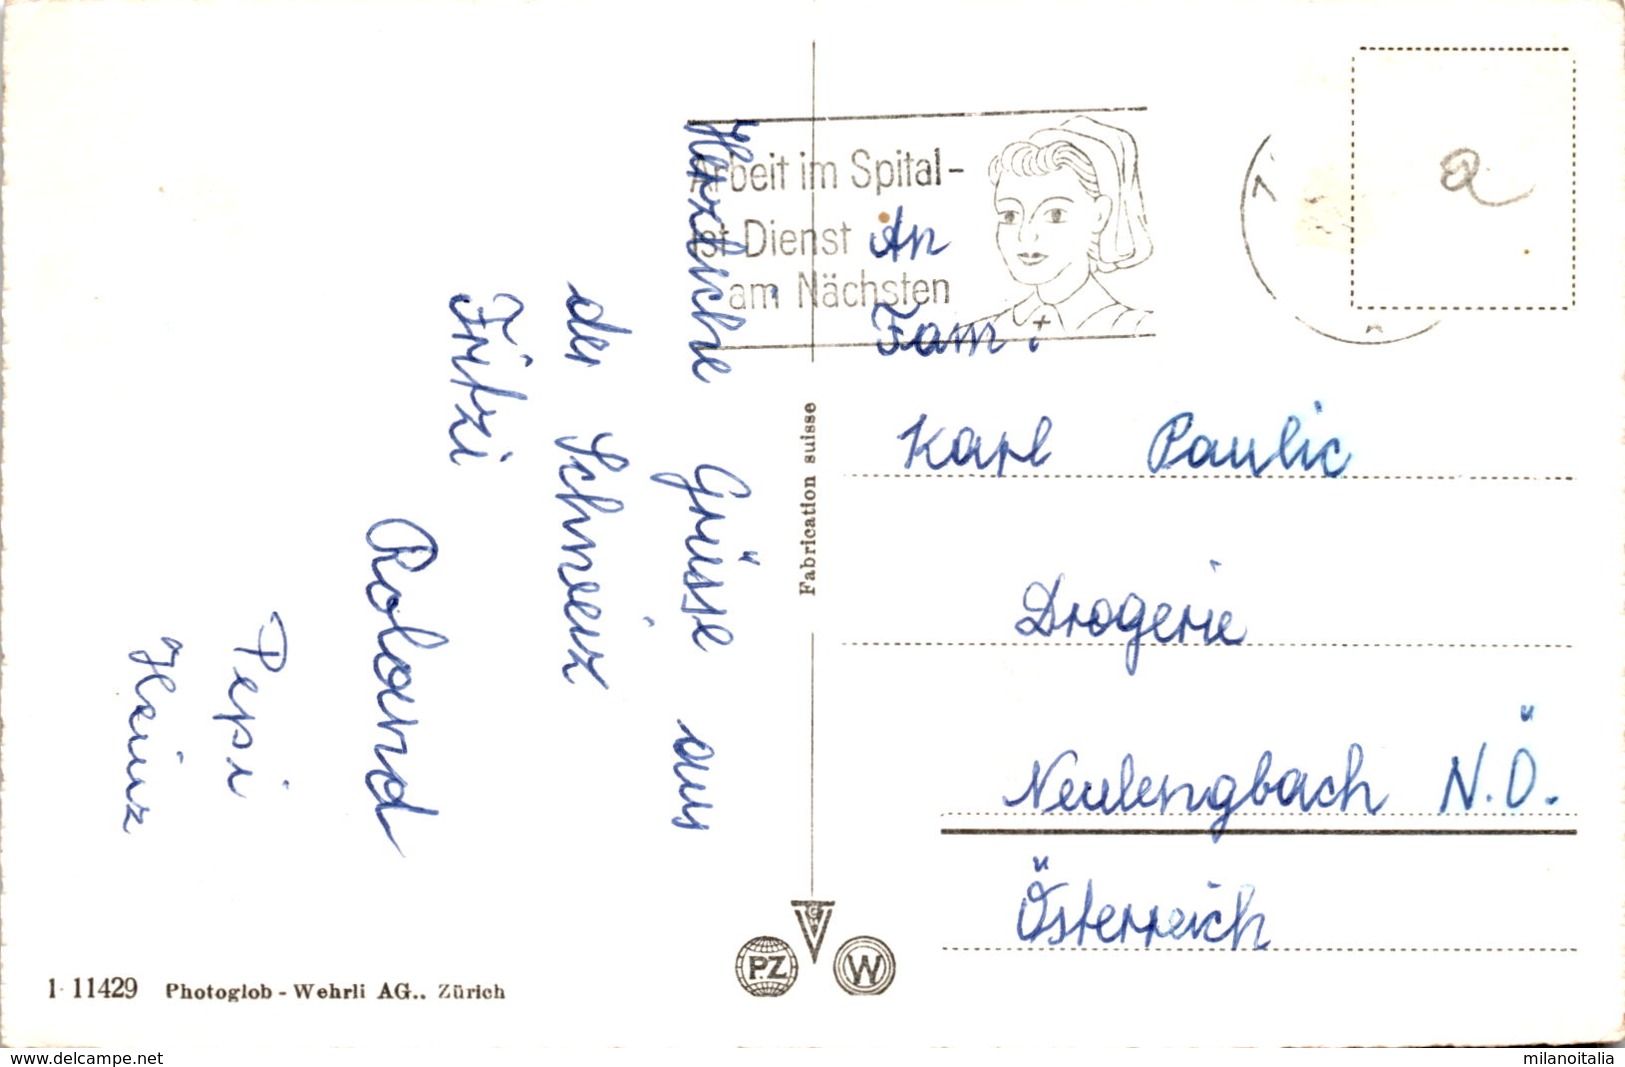 Herzliche Grüsse aus
der Schweiz
Fritzi
Roland
Pepi
Heinz
Arbeit im Spital-
ist Dienst
am Nächsten
An
Fam.
Karl Paulic
Drogerie
Neulengbach N.Ö.
Österreich
Fabrication suisse
a
PZ
W
1 11429 Photoglob - Wehrli AG.. Zürich
www.delcampe.net
milanoitalia